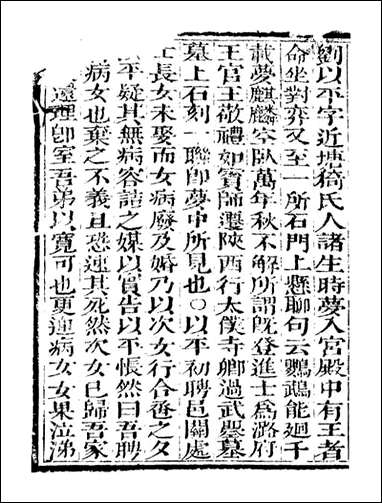 劉以平字近塘猗氏人諸生時夢入宮殿中有王者
命坐對弈又至一所石門上懸聯句云鸚鵡能廻千
載夢麒麟空臥萬年秋不解所謂旣登進士爲潞府
王官王敬禮如賓師遷陝西行太僕寺卿過武墾墓
墓上石刻一聯卽夢中所見也○以平初聘邑關處
士長女未娶而女病廢及婚乃以次女行合巹之夕
以平疑其無病容詰之媒以實告以平悵然曰吾聘
病女也棄之不義且恐速其死然次女已歸吾家
遣理卽室吾弟以寬可也更迎病女女果泣涕